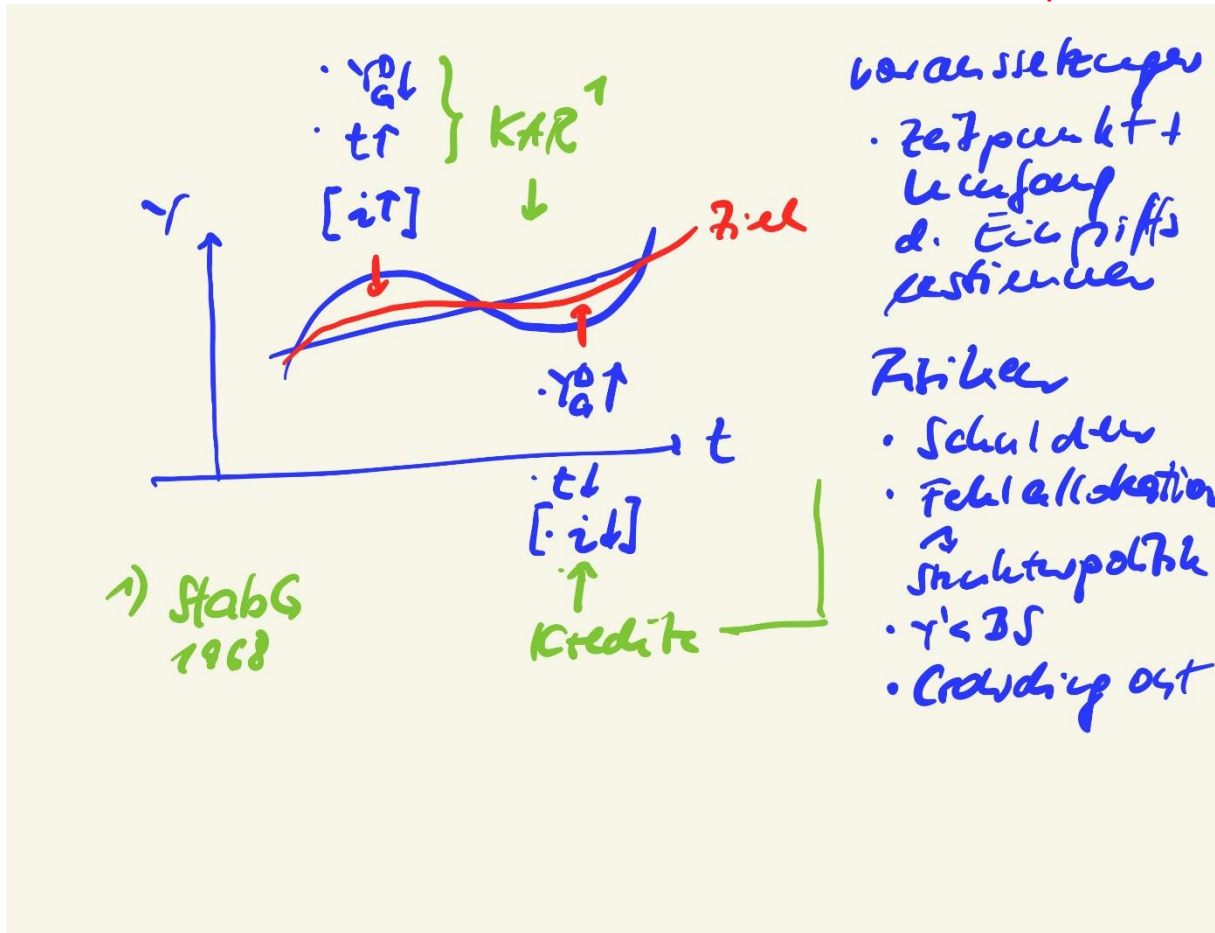 · Y_G^D↓
· t↑
} KAR¹
[i↑]
↓
Y
Ziel
· Y_G^D↑
t
· t↓
[· i↓]
↑
Kredite
1) StabG
1968
Voraussetzungen
· Zeitpunkt +
Umfang
d. Eingriffs
bestimmen
Risiken
· Schulden
· Fehlallokation
Strukturpolitik
· Y'< BS
· Crowding out